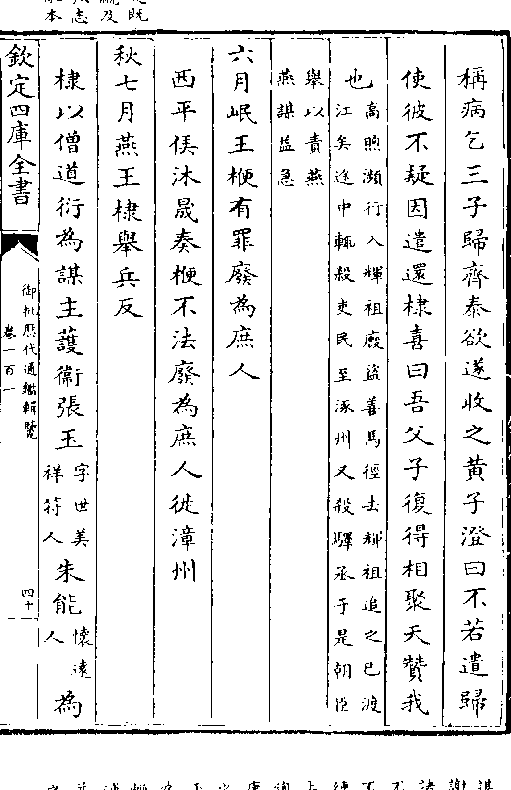 稱病乞三子歸齊泰欲遂收之黃子澄曰不若遣歸
使彼不疑因遣還棣喜曰吾父子復得相聚天贊我
也高煦瀕行入輝祖廄盜善馬徑去輝祖追之已渡
江矣途中輒殺吏民至涿州又殺驛丞于是朝臣
舉以責燕
燕謀益急
六月岷王楩有罪廢為庶人
西平侯沐晟奏楩不法廢為庶人徙漳州
秋七月燕王棣舉兵反
棣以僧道衍為謀主護衞張玉字世美祥符人朱能懷遠人為
欽定四庫全書
御批歷代通鑑輯覽
卷一百一
四十